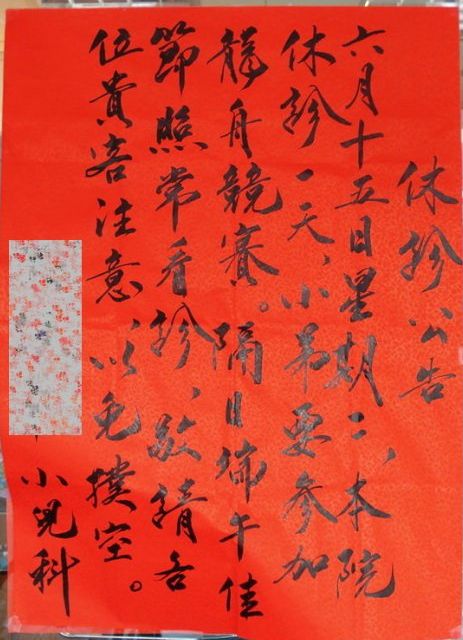 休診公告
六月十五日星期二、本院
休診一天、小弟要參加
龍舟競賽。隔日端午佳
節照常看診、敬請各
位貴客注意、以免撲空。
小兒科